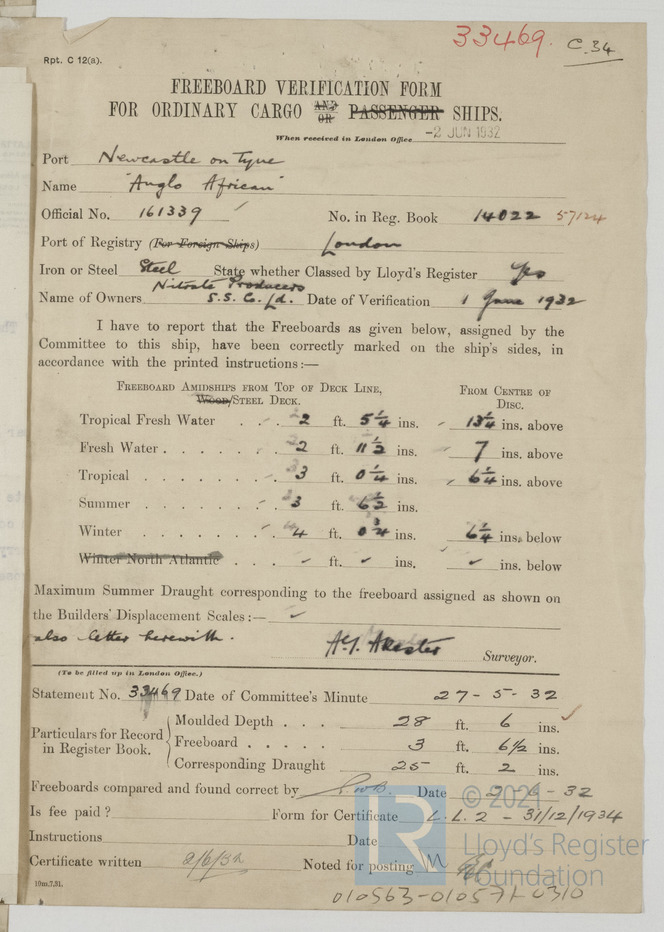 33469. C.34
Rpt. C 12(a).
FREEBOARD VERIFICATION FORM
FOR ORDINARY CARGO AND OR PASSENGER SHIPS.
When received in London Office -2 JUN 1932
Port Newcastle on Tyne
Name "Anglo African"
Official No. 161339 No. in Reg. Book 14022 57124
Port of Registry (For Foreign Ships) London
Iron or Steel Steel State whether Classed by Lloyd's Register Yes
Name of Owners Nitrate Producers S.S. Co. Ld. Date of Verification 1 June 1932
I have to report that the Freeboards as given below, assigned by the
Committee to this ship, have been correctly marked on the ship's sides, in
accordance with the printed instructions:—
FREEBOARD AMIDSHIPS FROM TOP OF DECK LINE, FROM CENTRE OF
WOOD/STEEL DECK. DISC.
Tropical Fresh Water . . . 2 ft. 5 1/4 ins. 13 1/4 ins. above
Fresh Water . . . . . . 2 ft. 11 1/2 ins. 7 ins. above
Tropical . . . . . . . 3 ft. 0 1/4 ins. 6 1/4 ins. above
Summer . . . . . . . 3 ft. 6 1/2 ins.
Winter . . . . . . . 4 ft. 0 3/4 ins. 6 1/4 ins. below
Winter North Atlantic . . . ✓ ft. ✓ ins. ✓ ins. below
Maximum Summer Draught corresponding to the freeboard assigned as shown on
the Builders' Displacement Scales:— ✓
also letter herewith.
Surveyor.
(To be filled up in London Office.)
Statement No. 33469 Date of Committee's Minute 27-5-32
Particulars for Record in Register Book.
Moulded Depth . . . 28 ft. 6 ins. ✓
Freeboard . . . . . 3 ft. 6 1/2 ins.
Corresponding Draught 25 ft. 2 ins.
Freeboards compared and found correct by Date 2-6-32
Is fee paid? Form for Certificate L.L.2 - 31/12/1934
Instructions Date
Certificate written 2/6/32 Noted for posting
10m,7,31.
010563-010571-0310
© 2021
LR
Lloyd's Register
Foundation